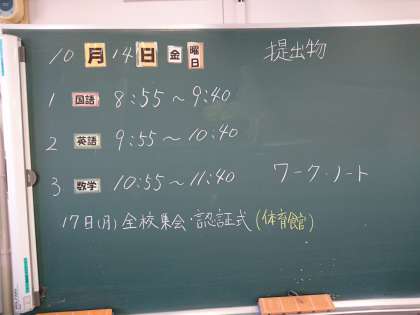 10月14日 金曜日 提出物
1 国語 8:55～9:40
2 英語 9:55～10:40
3 数学 10:55～11:40 ワーク・ノート
17日(月)全校集会・認証式(体育館)